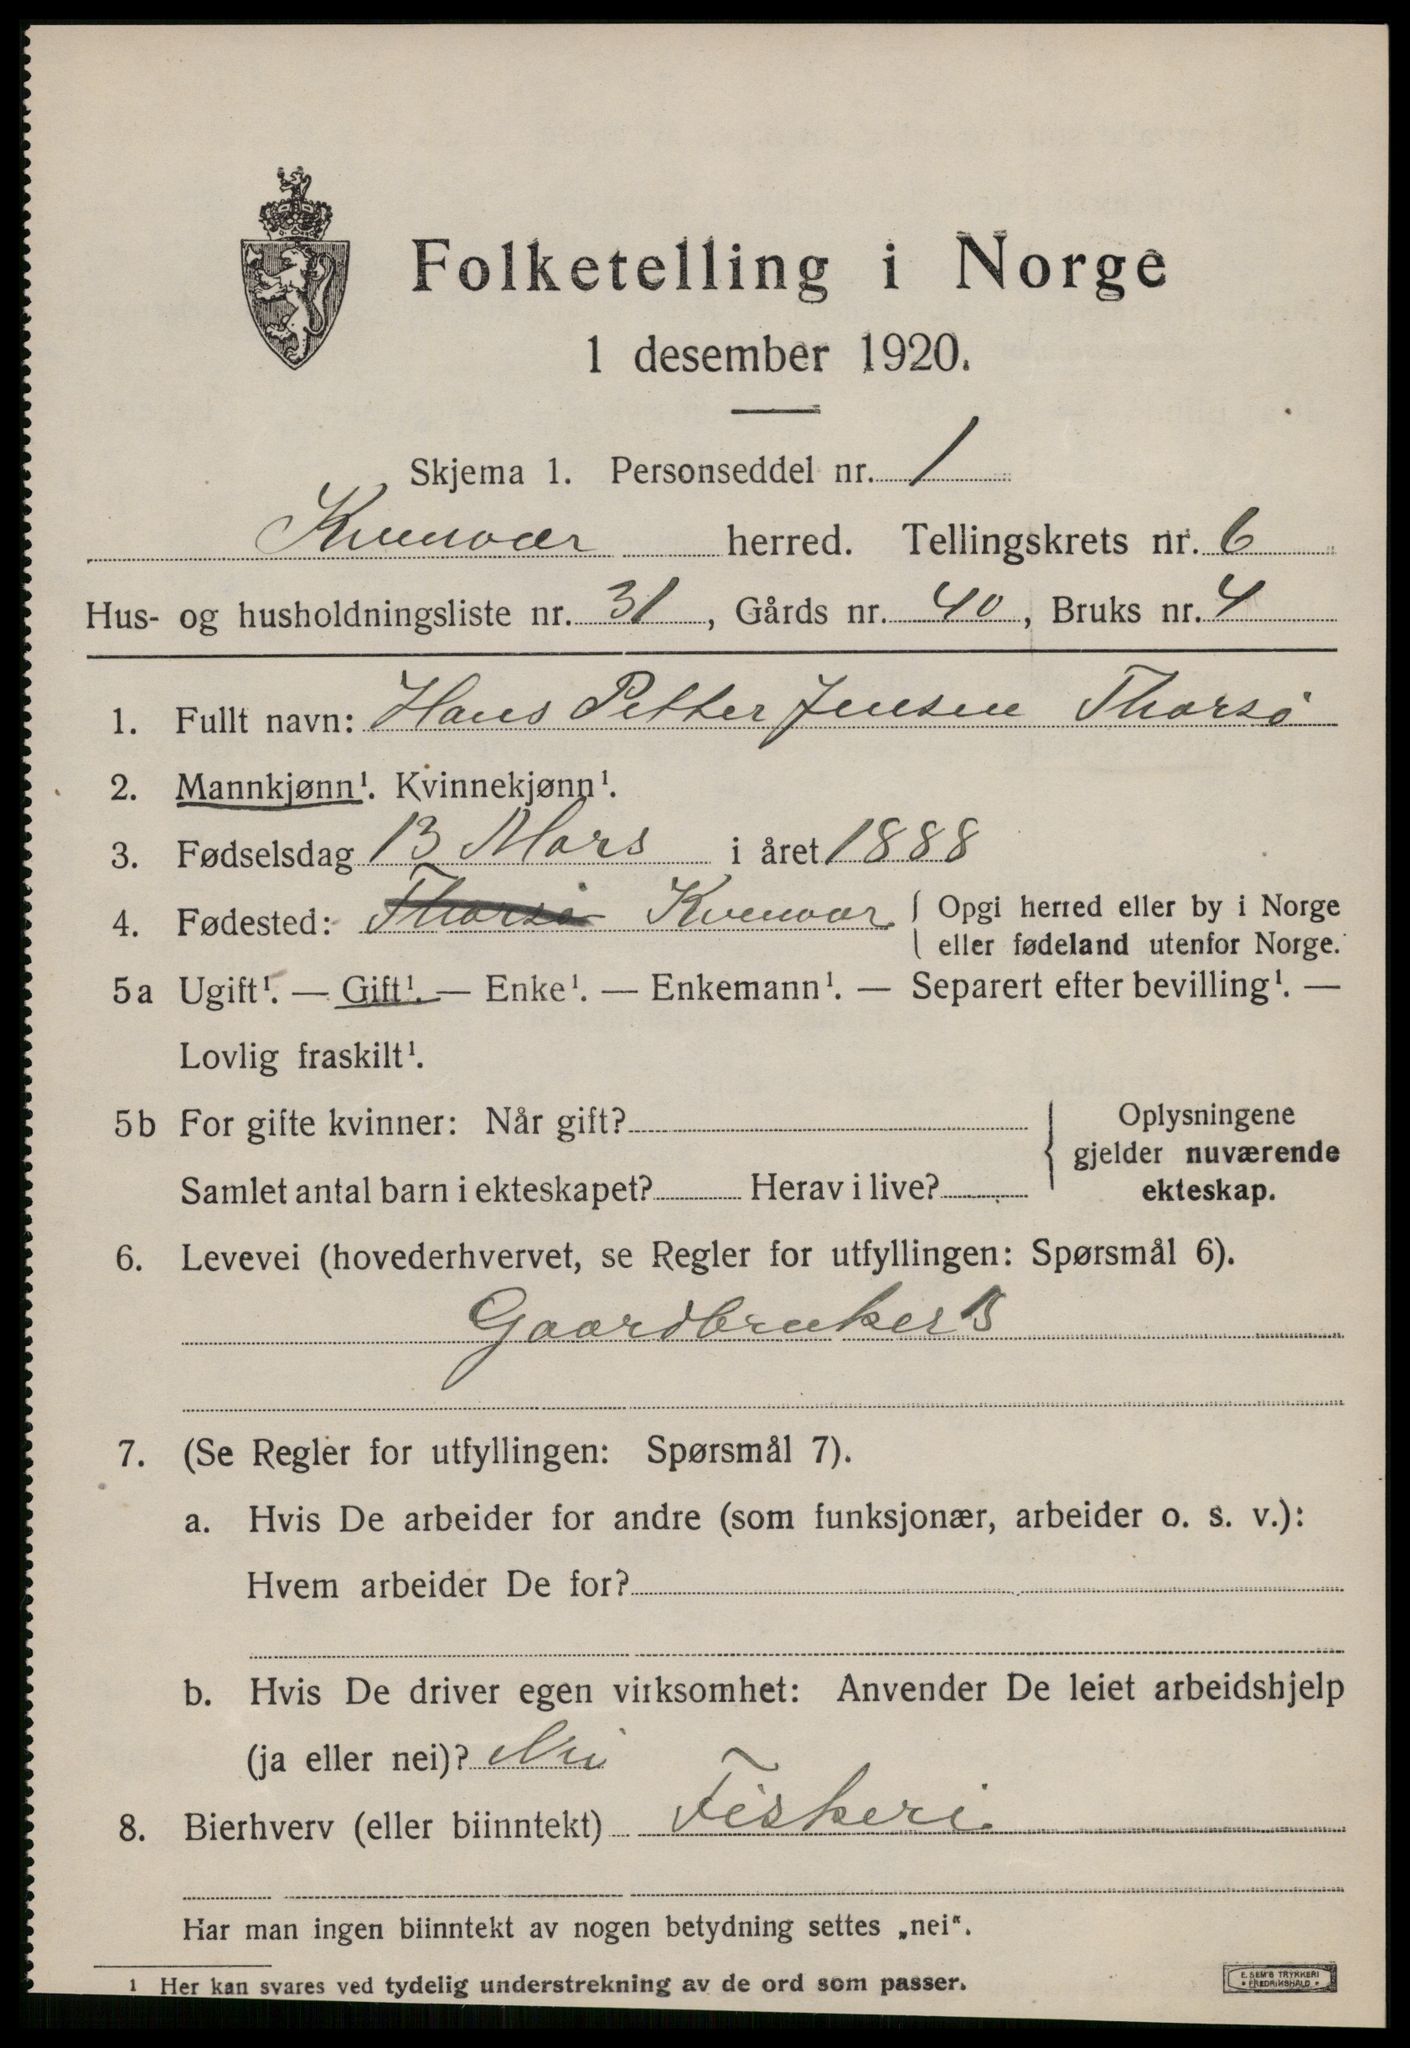 Folketelling i Norge
1 desember 1920.
Skjema 1. Personseddel nr. 1
Kvenvær herred. Tellingskrets nr. 6
Hus- og husholdningsliste nr. 31, Gårds nr. 40, Bruks nr. 4
1. Fullt navn: Hans Petter Jensen Thorsø
2. Mannkjønn¹. Kvinnekjønn¹.
3. Fødselsdag 13 Mars i året 1888
4. Fødested: Thorsø Kvenvær { Opgi herred eller by i Norge
eller fødeland utenfor Norge.
5a Ugift¹. — Gift¹. — Enke¹. — Enkemann¹. — Separert efter bevilling¹. —
Lovlig fraskilt¹.
5b For gifte kvinner: Når gift? { Oplysningene
gjelder nuværende
Samlet antal barn i ekteskapet? Herav i live? ekteskap.
6. Levevei (hovederhvervet, se Regler for utfyllingen: Spørsmål 6).
Gaardbruker B
7. (Se Regler for utfyllingen: Spørsmål 7).
a. Hvis De arbeider for andre (som funksjonær, arbeider o. s. v.):
Hvem arbeider De for?
b. Hvis De driver egen virksomhet: Anvender De leiet arbeidshjelp
(ja eller nei)? Nei
8. Bierhverv (eller biinntekt) Fiskeri
Har man ingen biinntekt av nogen betydning settes „nei“.
¹ Her kan svares ved tydelig understrekning av de ord som passer.
E. SEM'S TRYKKERI
FREDRIKSHALD